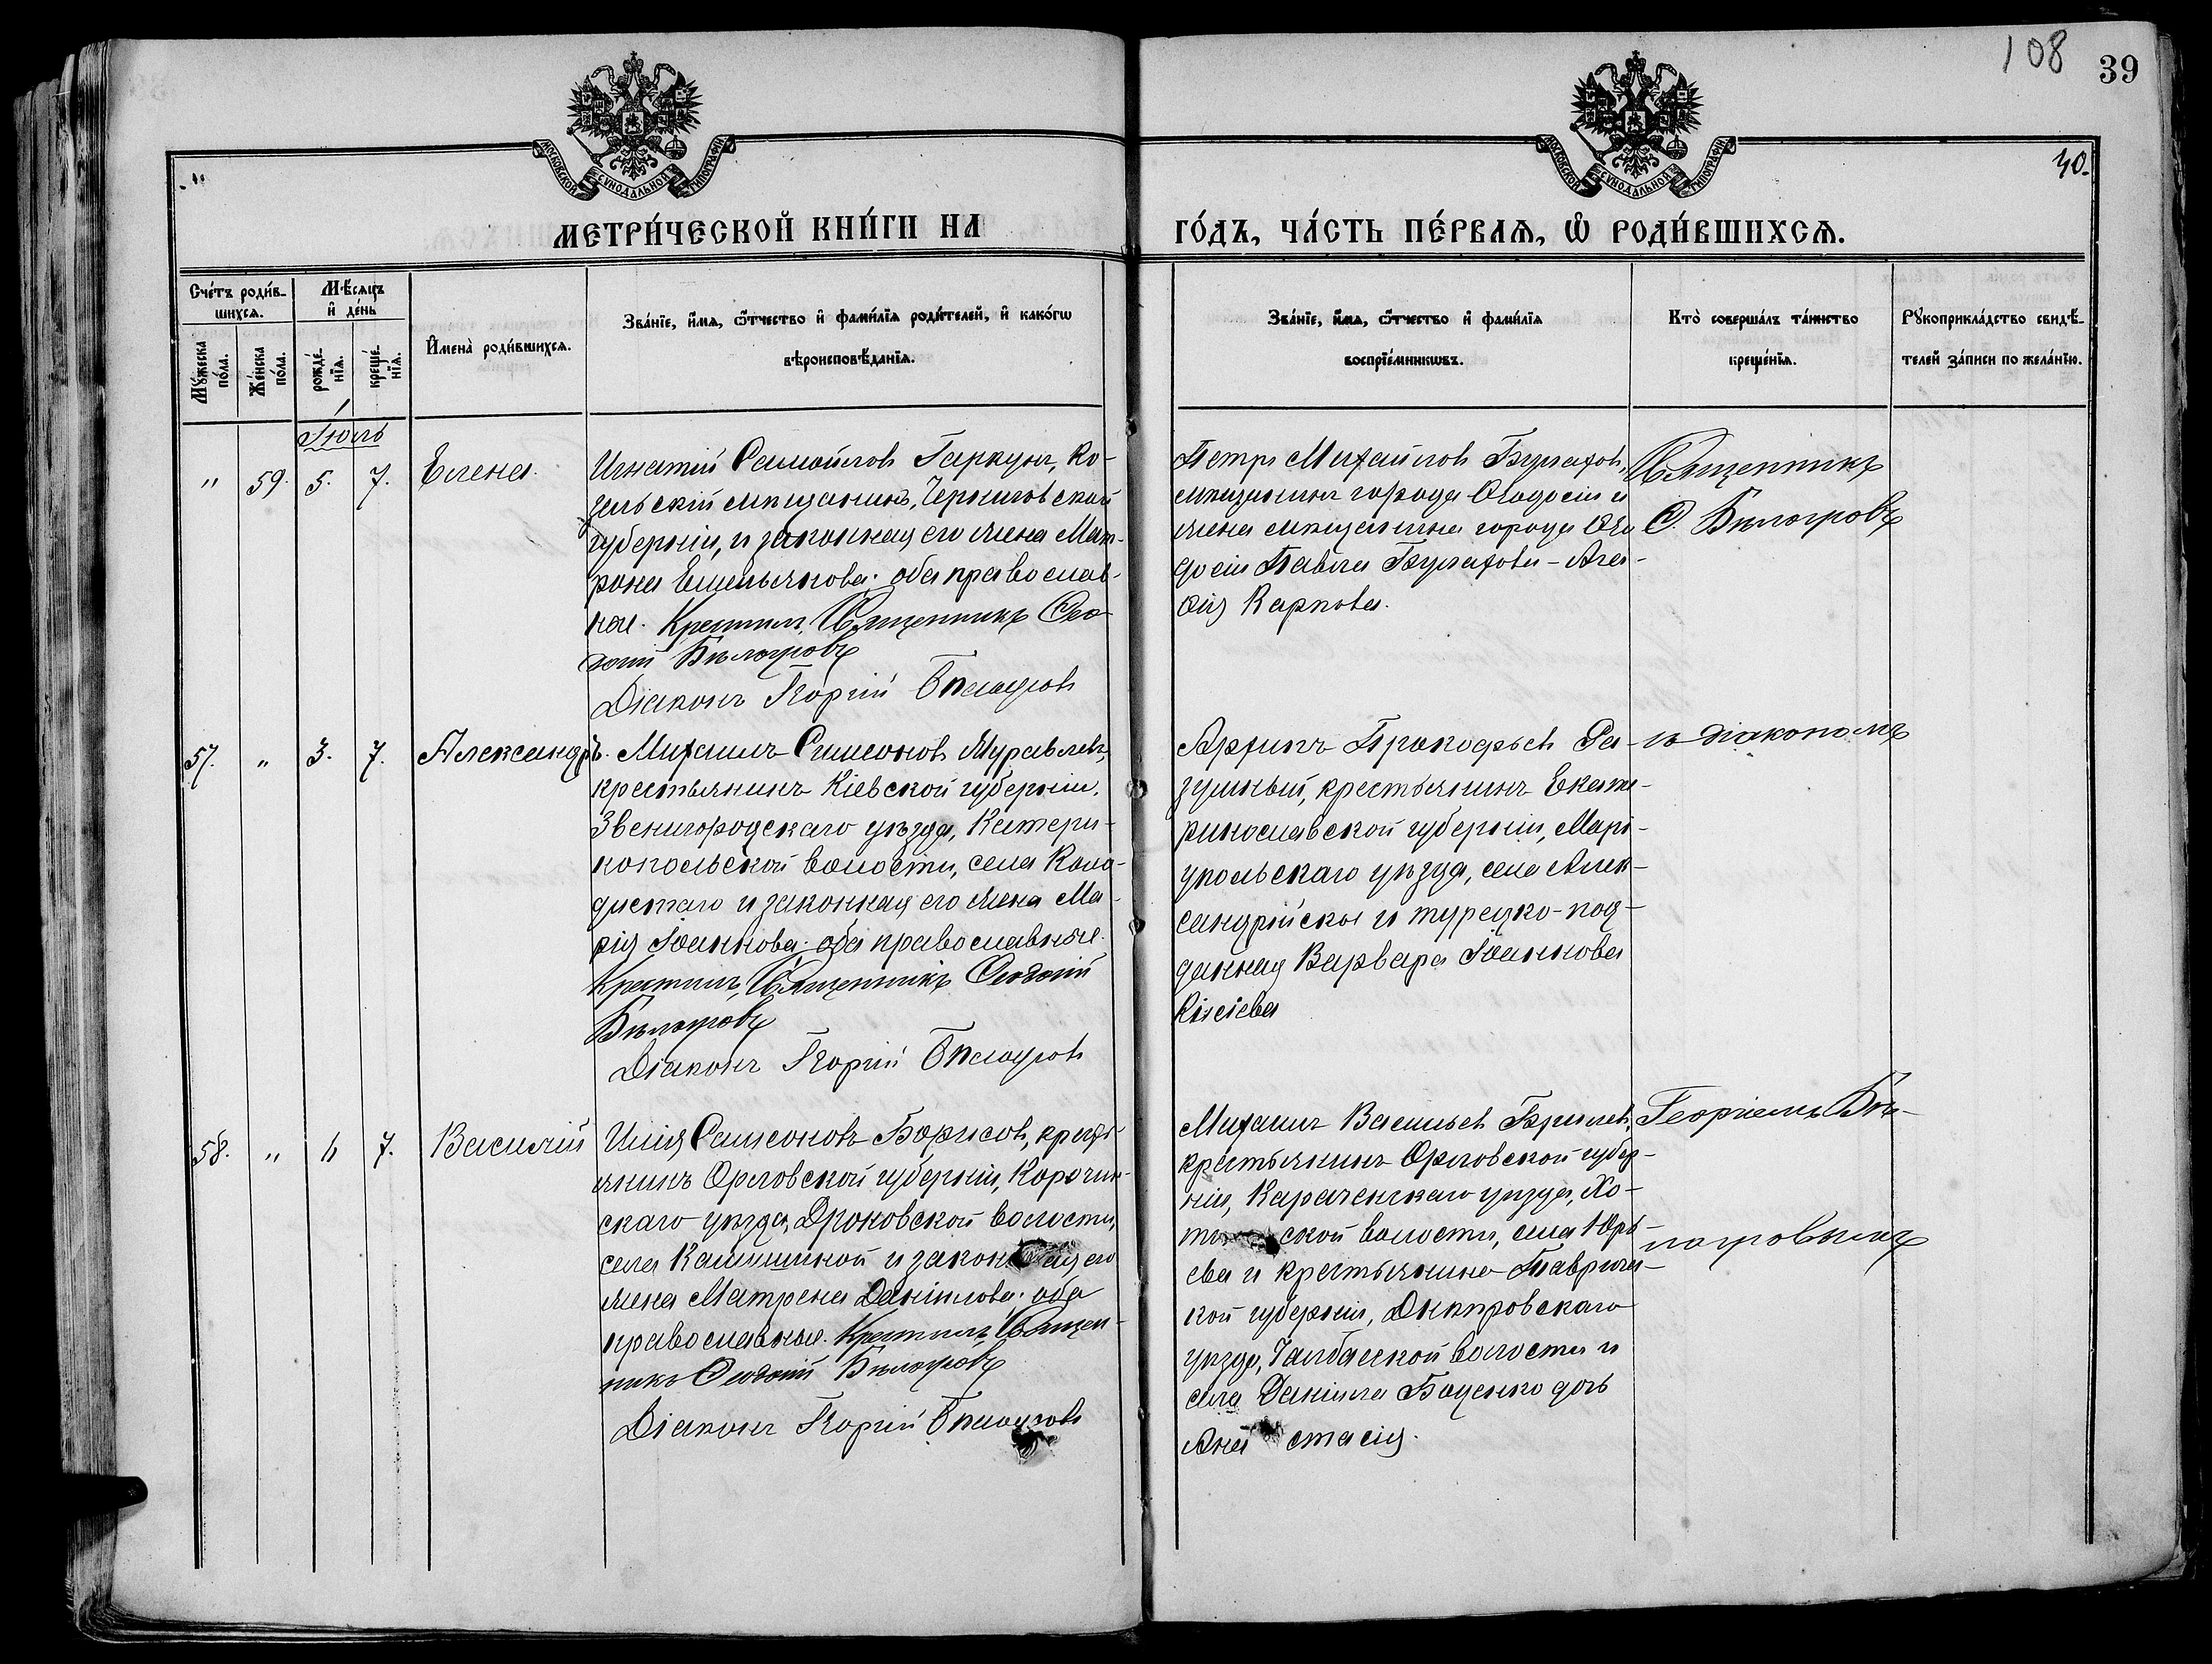 108
39
40.
МОСКОВСКОЙ СѴНОДАЛЬНОЙ ТИПОГРАФІИ
МОСКОВСКОЙ СѴНОДАЛЬНОЙ ТИПОГРАФІИ
МЕТРИ́ЧЕСКОЙ КНИ́ГИ НА
ГО́ДЪ, ЧА́СТЬ ПЕ́РВАѦ, Ѡ҆ РОДИ́ВШИХСѦ.
Сче́тъ роди́в-
шихсѧ.
Мꙋ́жеска по́ла.
Же́нска по́ла.
Мѣ́сѧцъ
и҆ де́нь
рожде́-
нїѧ.
креще́-
нїѧ.
И҆мена̀ роди́вшихсѧ.
Зва́нїе, и҆́мѧ, ѻ҆́тчество и҆ фами́лїѧ роди́телей, и҆ како́гѡ
вѣроисповѣ́данїѧ.
Зва́нїе, и҆́мѧ, ѻ҆́тчество и҆ фами́лїѧ
воспрїе́мникѡвъ.
Кто̀ соверша́лъ та́инство
креще́нїѧ.
Рꙋкоприкла́дство свидѣ́-
телей за́писи по жела́нїю.
Іюль
" 59. 5. 7. Елена.
Игнатій Самойловъ Гаркунъ, Ко-
зельскій мѣщанинъ, Черниговской
губерніи, и законная его жена Мат-
рона Емельянова. оба православ-
ные. Крестилъ Священникъ Ѳео-
досій Бѣлогровъ
Діаконъ Георгій Бѣлогровъ
Петръ Михайловъ Булатовъ,
мѣщанинъ города Ѳеодосіи и
жена мѣщанина города Ѳео
досіи Павла Булатова - Ага-
ѳія Карпова.
Священникъ
Ѳ. Бѣлогровъ
57. " 3. 7. Александръ.
Михаилъ Симеоновъ Журавлевъ,
крестьянинъ Кіевской губерніи,
Звенигородскаго уѣзда, Катери-
нопольской волости, села Коло-
дистаго и законная его жена Ма-
рія Іоаннова. оба православные.
Крестилъ, Священникъ Ѳеодосій
Бѣлогровъ
Діаконъ Георгій Бѣлогровъ
Архипъ Прокофьевъ Ра-
зумный, крестьянинъ Екате-
ринославской губерніи, Марі-
упольскаго уѣзда, села Алек-
сандрійское и турецко-под-
данная Варвара Іоаннова
съ діакономъ
58. " 6 7. Василій
Илія Самсоновъ Борисовъ, кресть
янинъ Орловской губерніи, Карачин-
скаго уѣзда, Дроновской волости,
села и законная его
жена Матрена Даніилова. оба
православные. Крестилъ, Священ-
никъ Ѳеодосій Бѣлогровъ
Діаконъ Георгій Бѣлогровъ
Михаилъ Васильевъ
крестьянинъ Орловской губер-
ніи, Караченскаго уѣзда, Хо-
ской волости, села Юрь-
ева и крестьянина Тавричес-
кой губерніи, Днѣпровскаго
уѣзда, волости и
села Даніила Боценко дочь
Ана стасія.
Георгіемъ Бѣ-
логровымъ